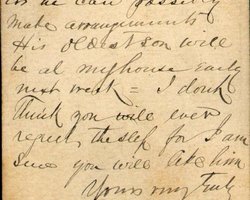 as he can possibly
make arrangements
His oldest son will
be at my house Early
next week = I don't
think you will ever
regret the step for I am
sure you will like him
Yours very Truly